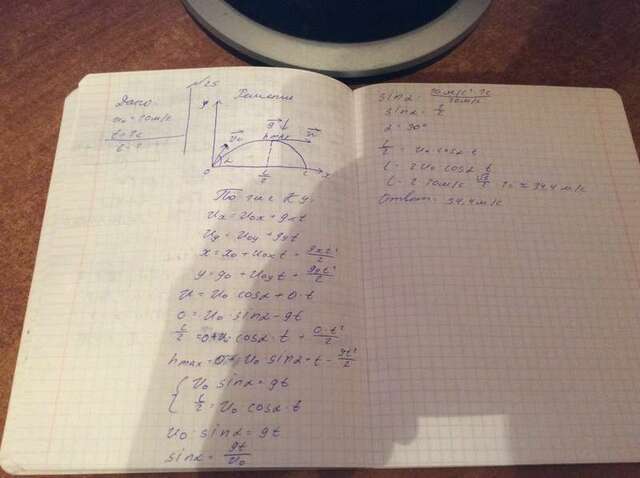 №25
Дано:
t = 1c
L - ?
Решение
y
g
v₀
hmax
v
α
0
L/2
L
x
vx = v0x + gxt
vy = v0y + gyt
x = x0 + v0xt + gxt²/2
y = y0 + v0yt + gyt²/2
v = v0 cosα + 0·t
0 = v0 · sinα - gt
L/2 = 0 + v0 cosα · t + 0·t²/2
hmax = 0 + v0 sinα · t - gt²/2
{ v0 sinα = gt
{ L/2 = v0 cosα · t
v0 · sinα = gt
sinα = gt/v0
sinα = 10м/с² · 1с
sinα = 1/2
α = 30°
L/2 = v0 cosα · t
L = 2 v0 cosα · t
Ответ: 34,4 м/с